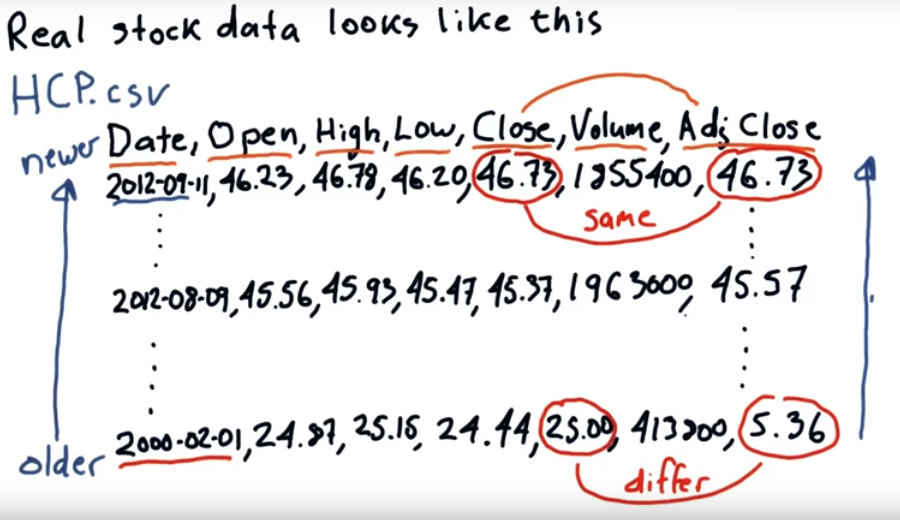 Real stock data looks like this
HCP.csv
newer
Date, Open, High, Low, Close, Volume, Adj Close
2012-09-11, 46.23, 46.78, 46.20, 46.73, 1855400, 46.73
same
2012-08-09, 45.56, 45.93, 45.47, 45.37, 1963000, 45.57
older
2000-02-01, 24.87, 25.15, 24.44, 25.00, 413800, 5.36
differ